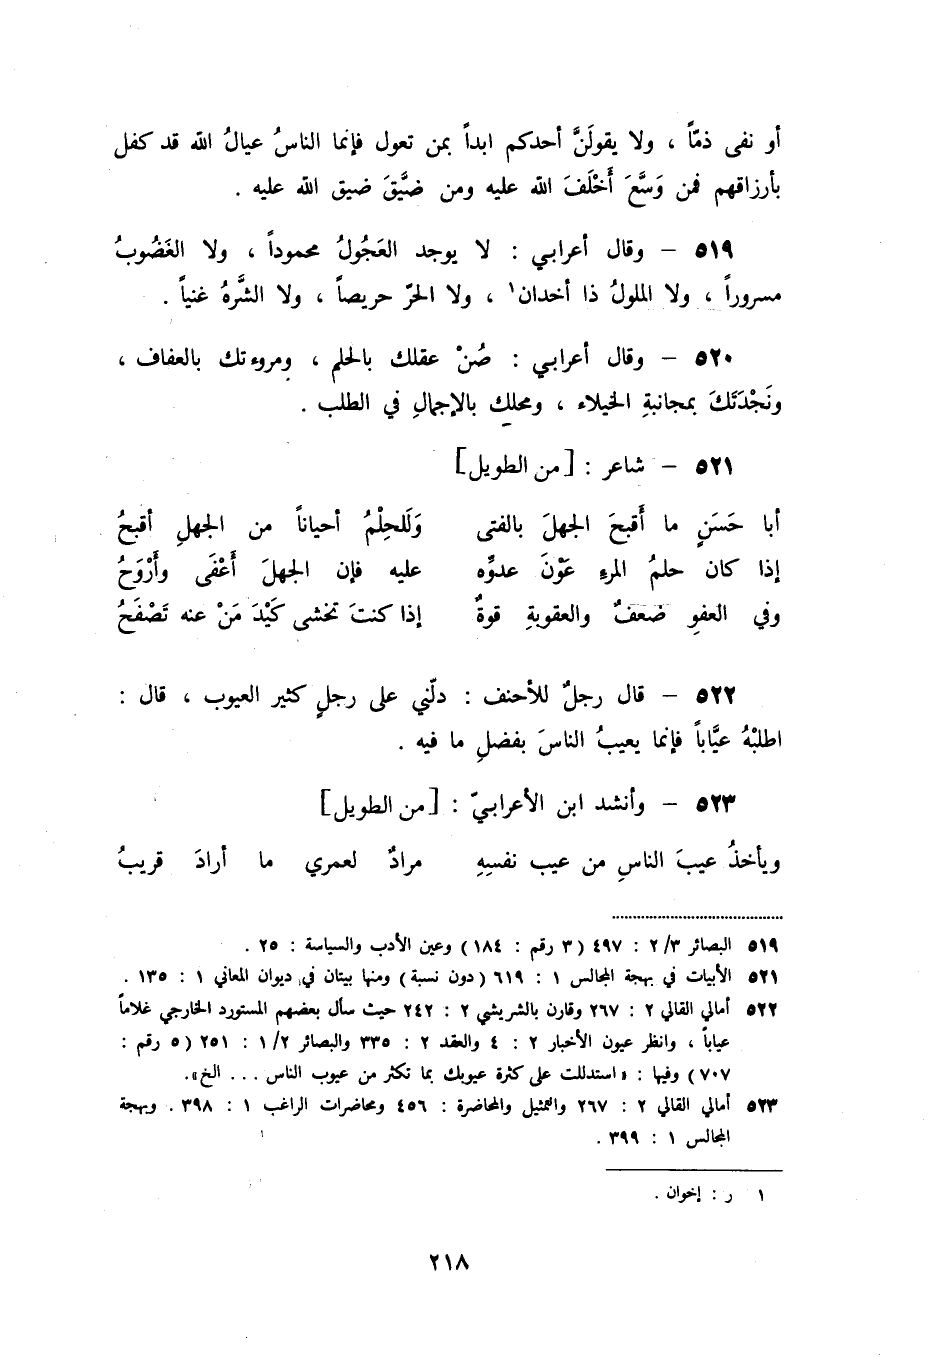 أو نفى ذمّاً ، ولا يقولَنَّ أحدكم ابداً بمن تعول فإنما الناسُ عيالُ الله قد كفل
بأرزاقهم فمن وَسَّعَ أَخْلَفَ الله عليه ومن ضيَّقَ ضيق الله عليه .
٥١٩ – وقال أعرابي : لا يوجد العَجُولُ محموداً ، ولا الغَضُوبُ
مسروراً ، ولا الملولُ ذا أخدان١ ، ولا الحرّ حريصاً ، ولا الشَّرِهُ غنياً .
٥٢٠ – وقال أعرابي : صُنْ عقلك بالحلم ، ومروءتك بالعفاف ،
ونَجْدَتَكَ بمجانبةِ الخيلاء ، ومحلك بالإجمالِ في الطلب .
٥٢١ – شاعر : [ من الطويل ]
أبا حَسَنٍ ما أَقبحَ الجهلَ بالفتى وَلَلحِلْمُ أحياناً من الجهلِ أقبحُ
إذا كان حلمُ المرءِ عَوْنَ عدوِّه عليه فإن الجهلَ أَعْفَى وأَرْوَحُ
وفي العفوِ ضَعفٌ والعقوبةِ قوةٌ إذا كنتَ تخشى كَيْدَ مَنْ عنه تَصْفَحُ
٥٢٢ – قال رجلٌ للأحنف : دلّني على رجلٍ كثير العيوب ، قال :
اطلبْهُ عيَّاباً فإنما يعيبُ الناسَ بفضلِ ما فيه .
٥٢٣ – وأنشد ابن الأعرابيّ : [ من الطويل ]
ويأخذُ عيبَ الناسِ من عيب نفسِهِ مرادٌ لعمري ما أرادَ قريبُ
٥١٩ البصائر ٣/ ٢ : ٤٩٧ (٣ رقم : ١٨٤) وعين الأدب والسياسة : ٢٥ .
٥٢١ الأبيات في بهجة المجالس ١ : ٦١٩ (دون نسبة) ومنها بيتان في ديوان المعاني ١ : ١٣٥ .
٥٢٢ أمالي القالي ٢ : ٢٦٧ وقارن بالشريشي ٢ : ٢٤٢ حيث سأل بعضهم المستورد الخارجي غلاماً
عياباً ، وانظر عيون الأخبار ٢ : ٤ والعقد ٢ : ٣٣٥ والبصائر ٢/ ١ : ٢٥١ (٥ رقم :
٧٠٧) وفيها : «استدللت على كثرة عيوبك بما تكثر من عيوب الناس . . . الخ».
٥٢٣ أمالي القالي ٢ : ٢٦٧ والتمثيل والمحاضرة : ٤٥٦ ومحاضرات الراغب ١ : ٣٩٨ . وبهجة
المجالس ١ : ٣٩٩ .
١ ر : إخوان .
٢١٨